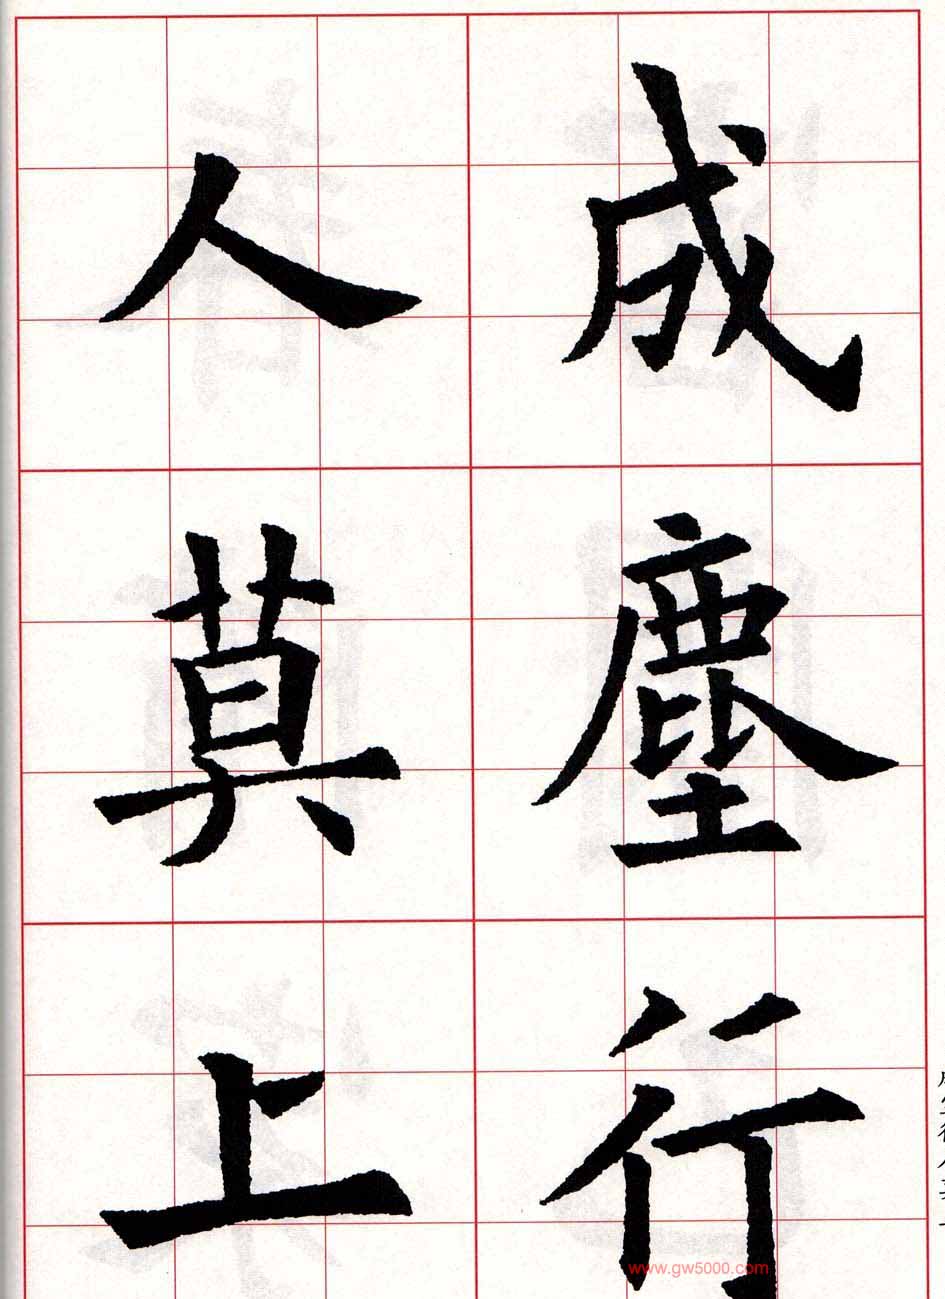 成塵行
人莫上
www.gw5000.com